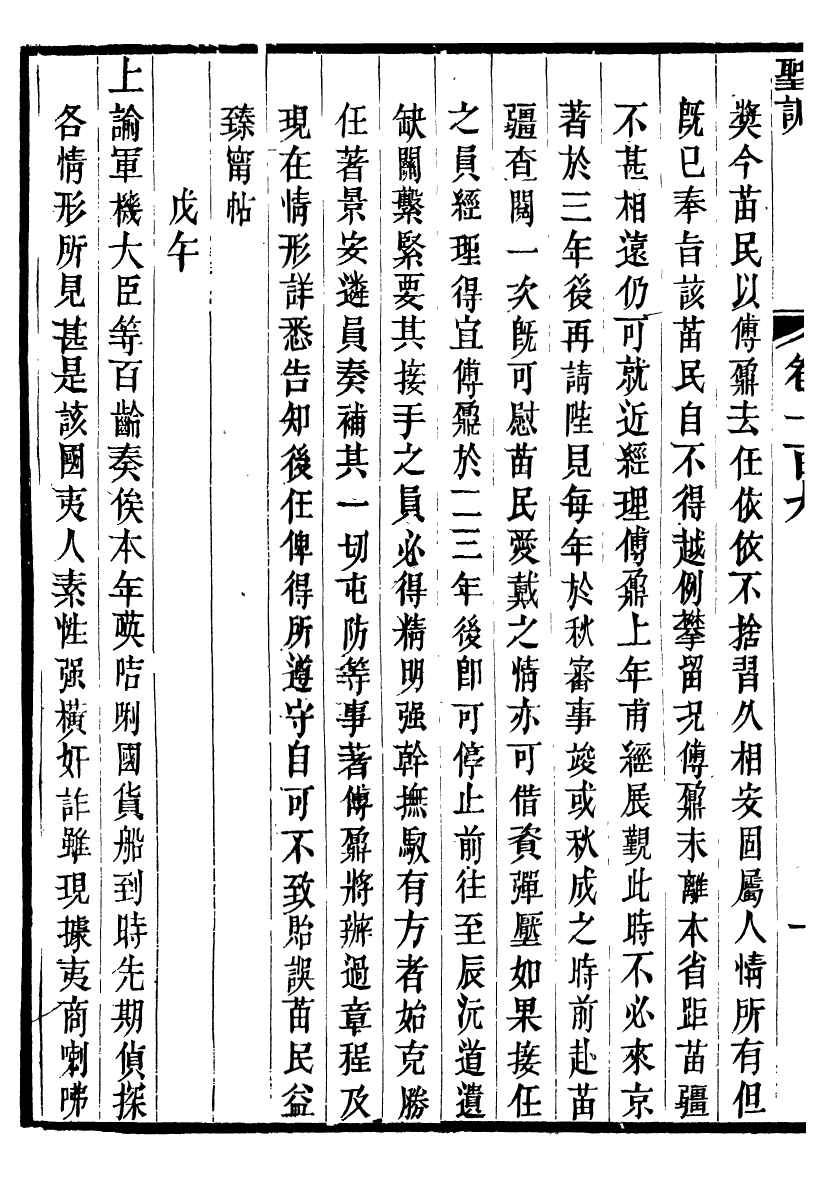 聖訓
卷一百九
一
奬今苗民以傅鼐去任依依不捨習久相安固屬人情所有但
旣已奉旨該苗民自不得越例攀留况傅鼐未離本省距苗疆
不甚相遠仍可就近經理傅鼐上年甫經展覲此時不必來京
著於三年後再請陛見每年於秋審事竣或秋成之時前赴苗
疆查閱一次旣可慰苗民愛戴之情亦可借資彈壓如果接任
之員經理得宜傅鼐於二三年後卽可停止前往至辰沅道遺
缺關繫緊要其接手之員必得精明强幹撫馭有方者始克勝
任著景安遴員奏補其一切屯防等事著傅鼐將辦過章程及
現在情形詳悉告知後任俾得所遵守自可不致貽誤苗民益
臻甯帖
戊午
上諭軍機大臣等百齡奏俟本年𠸄咭唎國貨船到時先期偵探
各情形所見甚是該國夷人素性强橫奸詐雖現據夷商喇咈